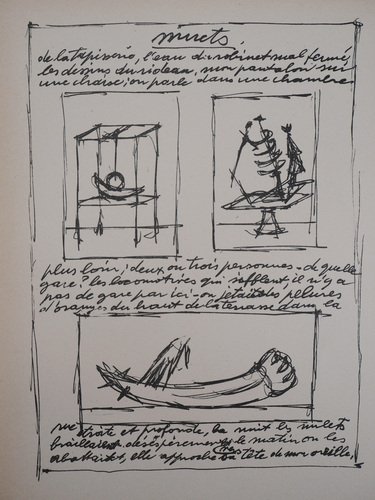 muets.
de la tapisserie, l'eau du robinet mal fermé,
les dessins du rideau, mon pantalon sur
une chaise; on parle dans une chambre
plus loin; deux ou trois personnes - de quelle
gare? les locomotives qui sifflent, il n'y a
pas de gare par ici - on jetait des pelures
d'oranges du haut de la terrasse dans la
rue étroite et profonde, la nuit les mulets
braillaient désespérément, le matin on les
abattait, elle approche sa tête de mon oreille,